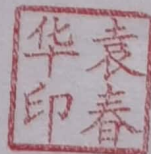 袁春
华印